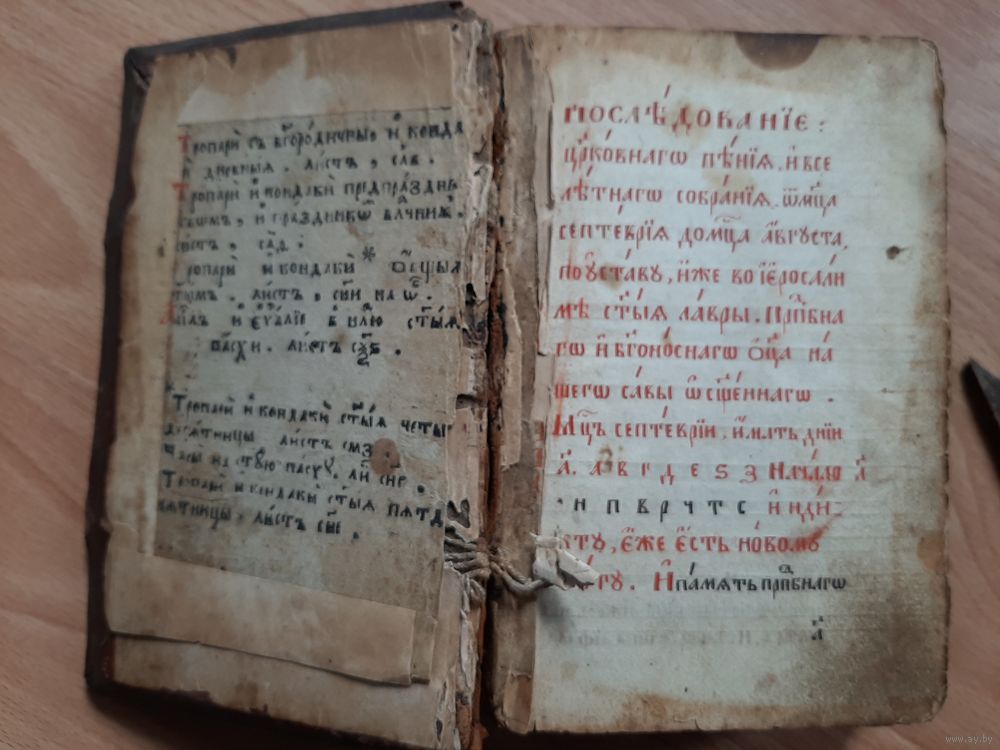 Тропари съ бг҃оро́дичны, и҆ конда
и҆ дневныя. ли́стъ. са҃в.
Тропари и҆ кондаки предпра́здне
ствомъ, и҆ пра́здникѡ влⷣчнимъ.
листъ. са҃д.
Тропари и҆ кондаки * ѻ҆бщыѧ
ст҃ымъ. ли́стъ. ѿ.
и҆ еѵⷢ҇лїе в неⷣлю ст҃ы́ѧ
па́схи. ли́стъ
Тропари и҆ кондаки ст҃ы́ѧ четы
десѧ́тницы листъ смз.
Часы на ст҃ꙋю пасхꙋ. ли снг.
Тропари и҆ кондаки ст҃ы́ѧ пѧтд
сѧтницы. ли́стъ
ПОСЛѢ́ДОВАНЇЕ:
цр҃ко́внагѡ пѣ́нїѧ, и҆ все
лѣ́тнагѡ собра́нїѧ. ѿ мцⷭ҇а
септе́врїѧ до мцⷭ҇а а҆́вгꙋста,
по ᲂу҆ста́вꙋ, и҆́же во і҆ерⷭ҇осали́
мѣ ст҃ы́ѧ ла́вры. Прпⷣбна
гѡ и҆ бг҃оно́снагѡ ѻ҆ц҃а на́
шегѡ са́вы ѡ҆сщ҃е́ннагѡ.
Мцⷭ҇ъ септе́врїи, и҆́мать днїи
л҃. а в г д е ѕ з Нача́ло
и п в р ч т с и҆нди́
ктꙋ, є҆́же є҆́сть но́вомꙋ
лѣ́тꙋ. И҆ па́мѧть прпⷣбнагѡ
www.ay.by